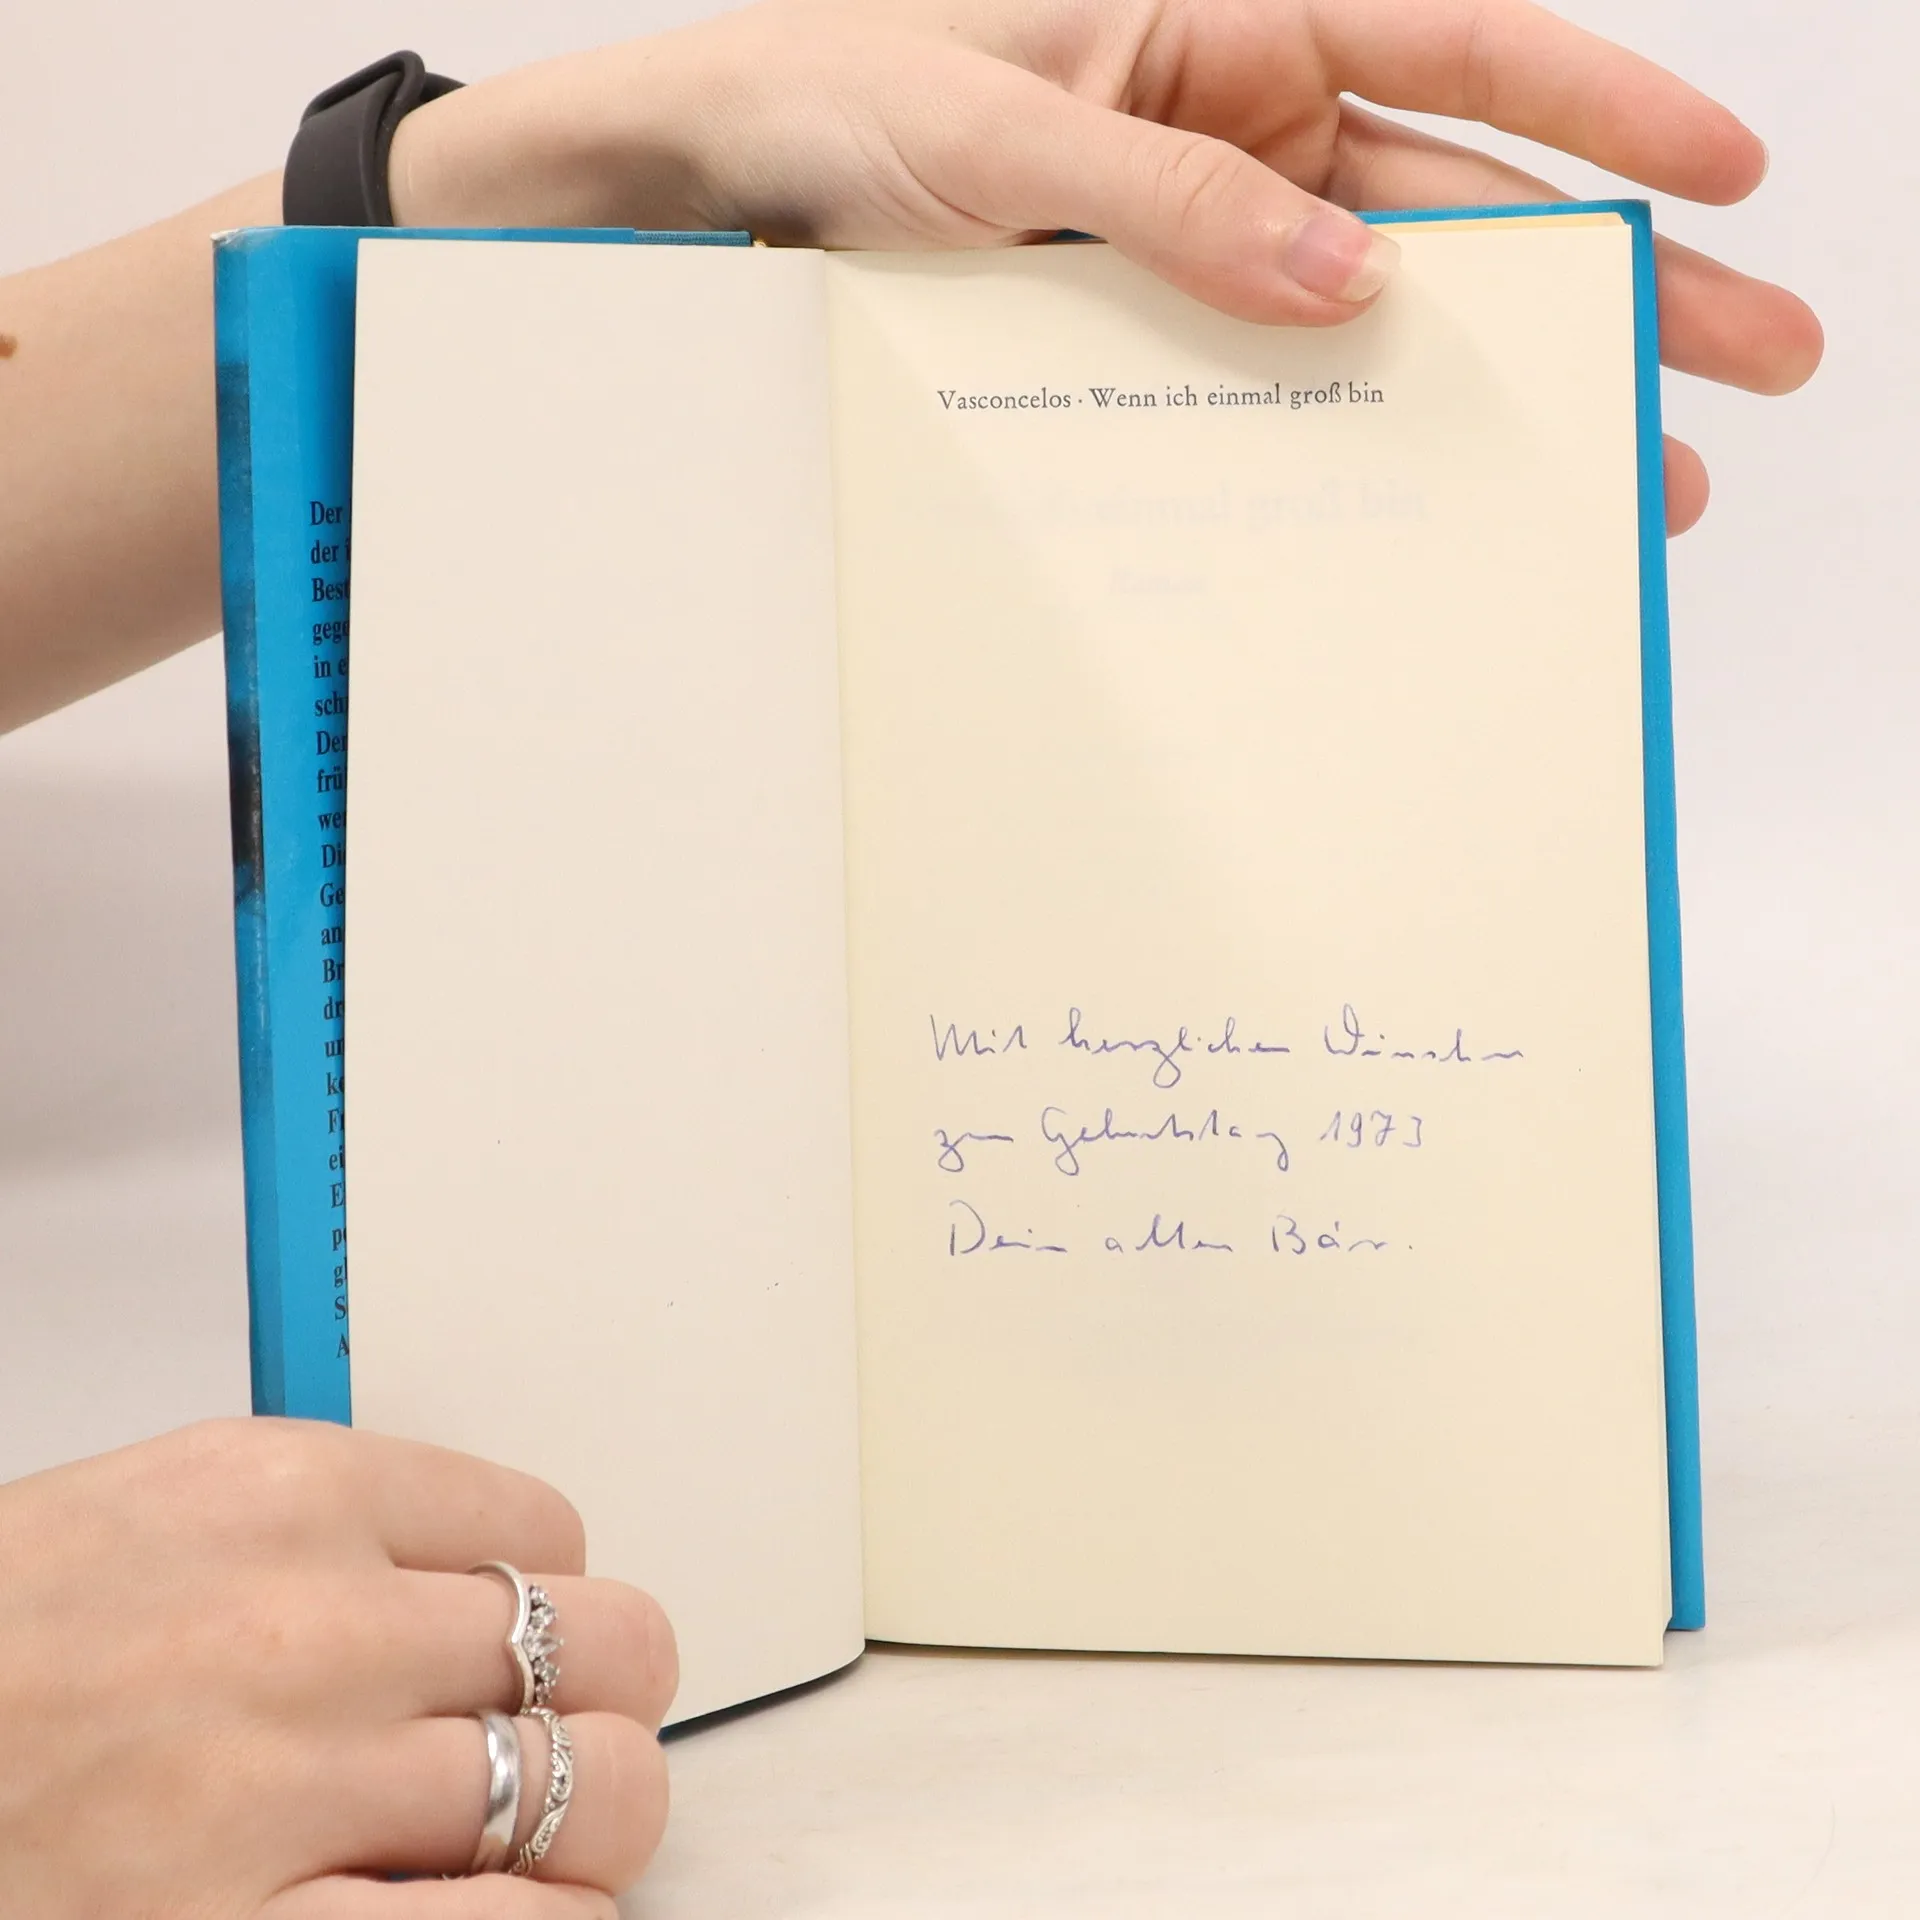 Der
der i
Best
gege
in e
sch
Der
frü
we
Di
Ge
an
Br
dr
un
ke
Fr
ei
E
pe
gl
S
A
Vasconcelos · Wenn ich einmal groß bin
einmal groß bin
Mit herzlichen Wünschen
zum Geburtstag 1973
Dein alter Bär.